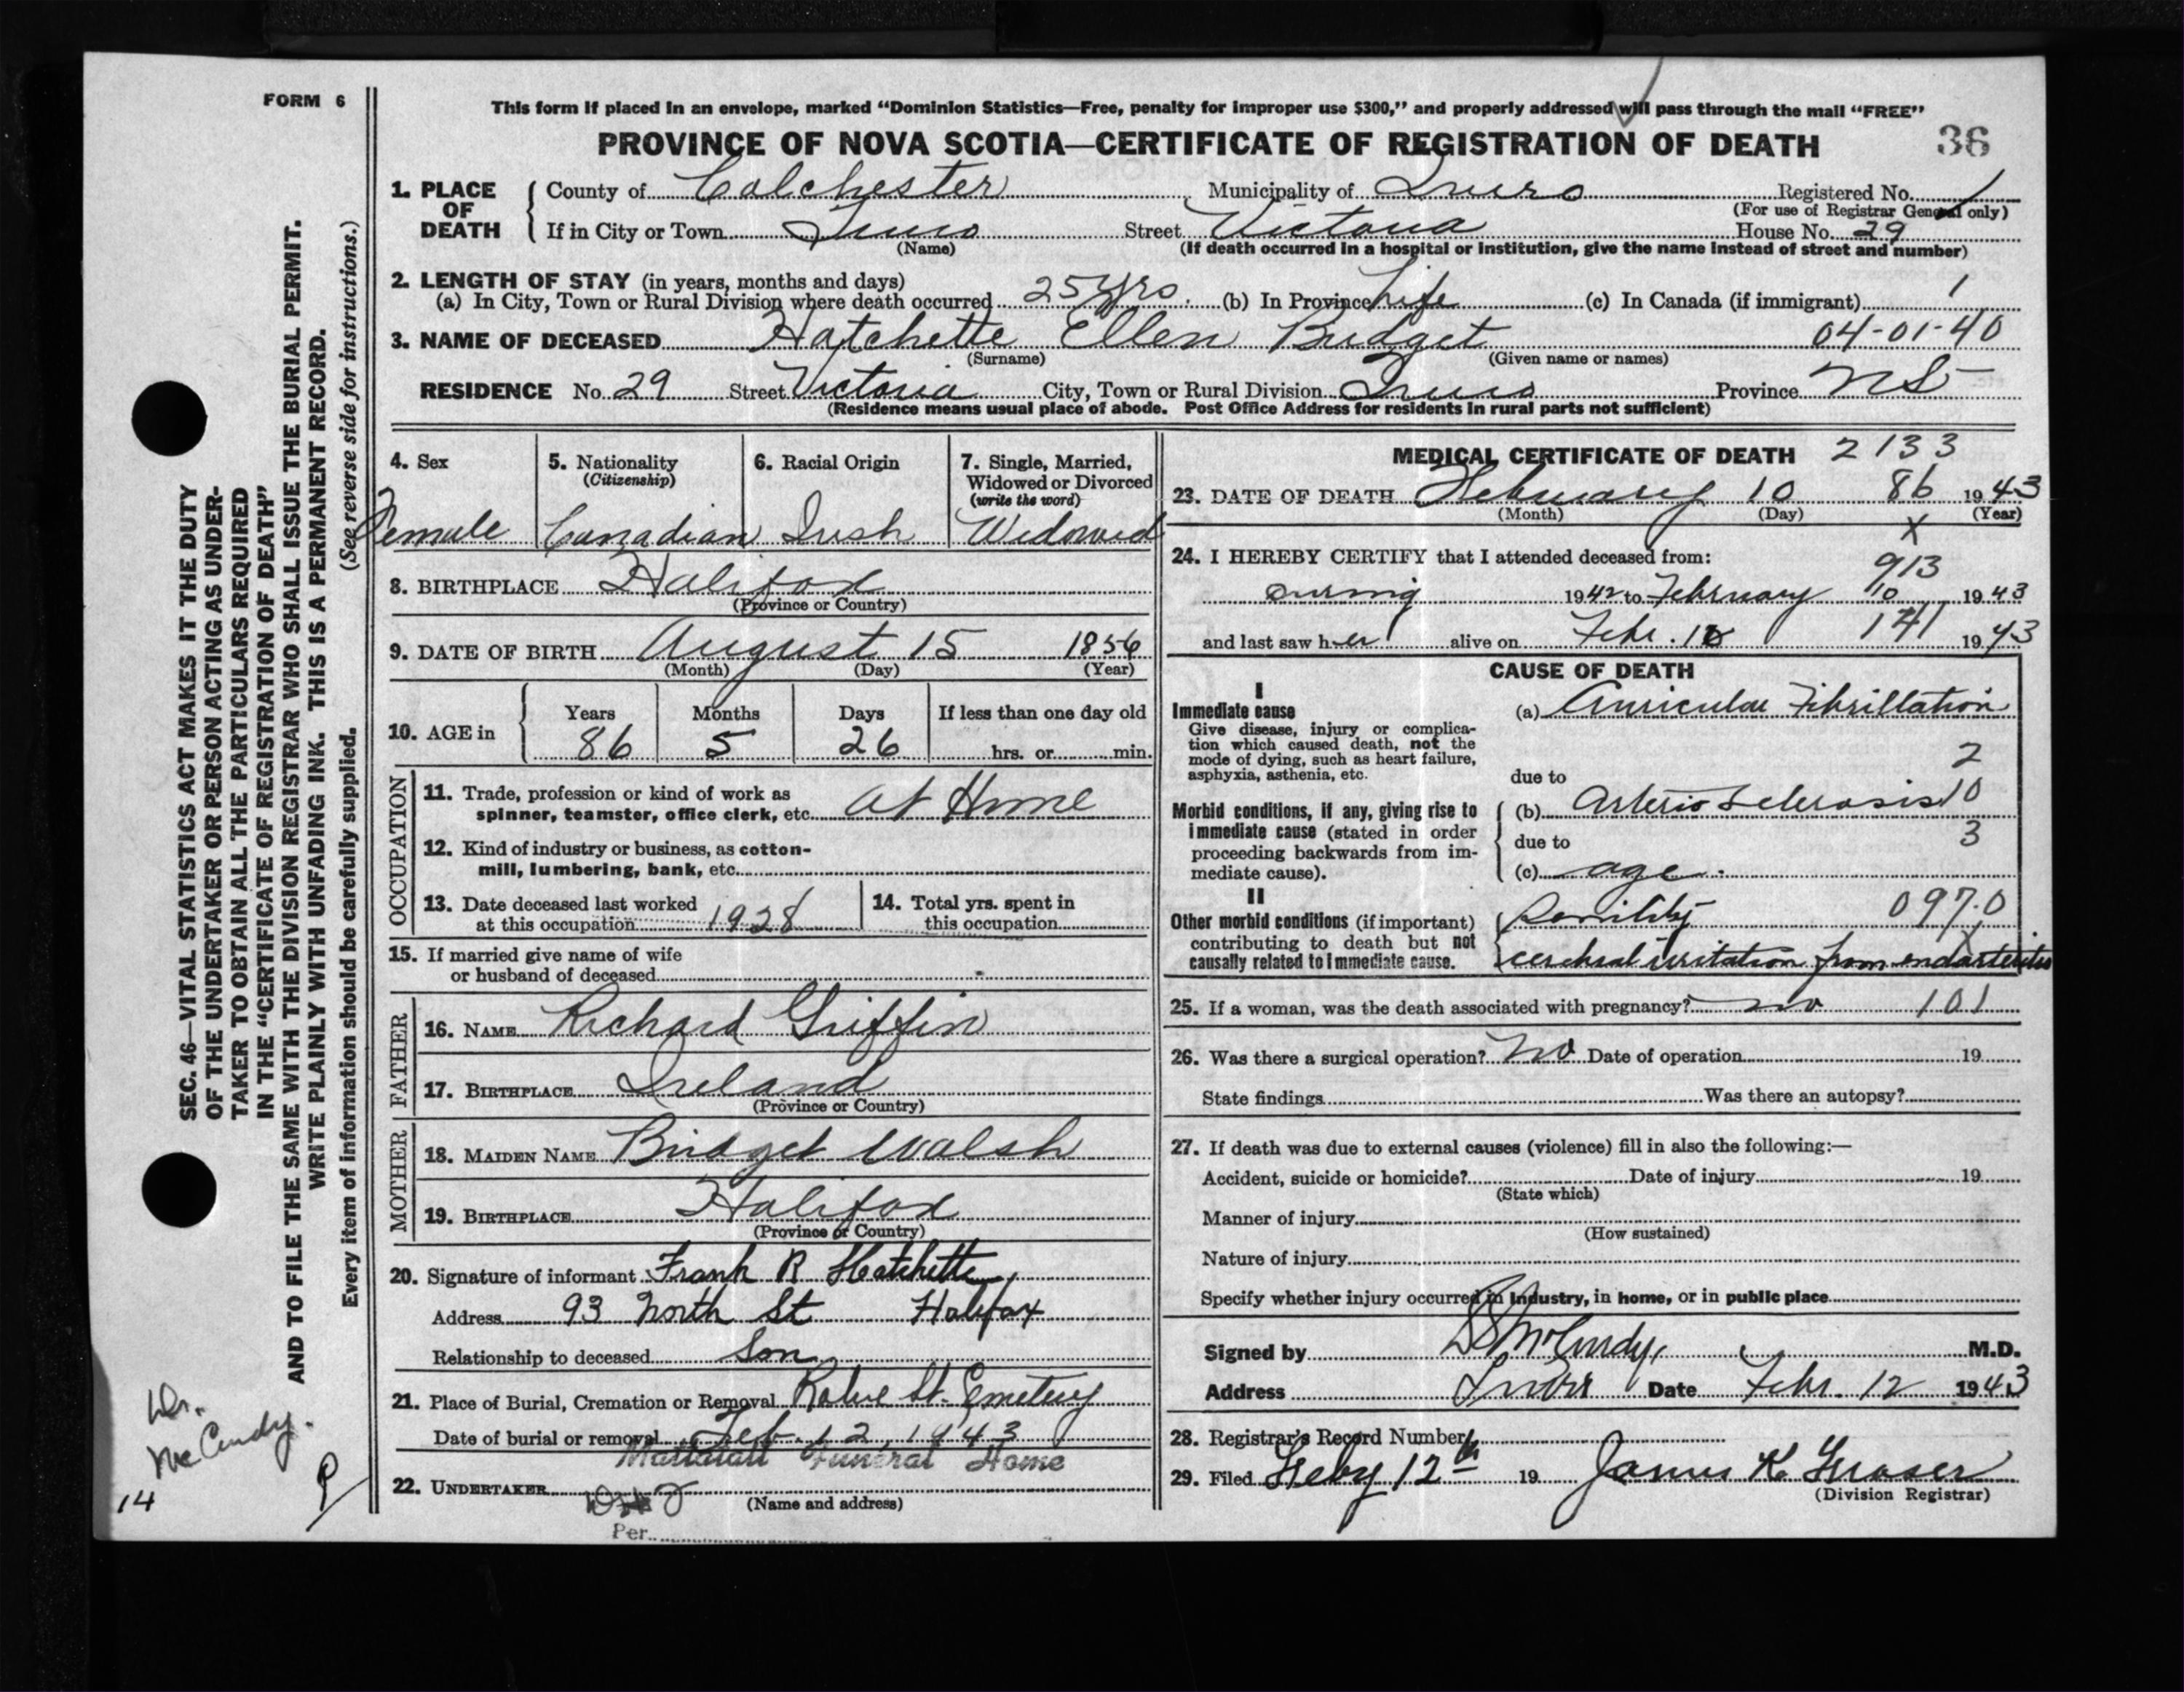 FORM 6
This form if placed in an envelope, marked “Dominion Statistics—Free, penalty for improper use $300,” and properly addressed will pass through the mail “FREE”
PROVINCE OF NOVA SCOTIA—CERTIFICATE OF REGISTRATION OF DEATH
36
1. PLACE OF DEATH
County of Colchester Municipality of Truro Registered No.
(For use of Registrar General only)
If in City or Town Truro Street Victoria House No. 29
(Name) (If death occurred in a hospital or institution, give the name instead of street and number)
2. LENGTH OF STAY (in years, months and days)
(a) In City, Town or Rural Division where death occurred 25 yrs. (b) In Province Life (c) In Canada (if immigrant) 1
3. NAME OF DECEASED Hatchette Ellen Bridget 04-01-40
(Surname) (Given name or names)
RESIDENCE No. 29 Street Victoria City, Town or Rural Division Truro Province NS
(Residence means usual place of abode. Post Office Address for residents in rural parts not sufficient)
4. Sex
Female
5. Nationality
(Citizenship)
Canadian
6. Racial Origin
Irish
7. Single, Married,
Widowed or Divorced
(write the word)
Widowed
8. BIRTHPLACE Halifax
(Province or Country)
9. DATE OF BIRTH August 15 1856
(Month) (Day) (Year)
10. AGE in
Years Months Days If less than one day old
86 5 26 hrs. or min.
OCCUPATION
11. Trade, profession or kind of work as
spinner, teamster, office clerk, etc. at Home
12. Kind of industry or business, as cotton-
mill, lumbering, bank, etc.
13. Date deceased last worked
at this occupation 1928
14. Total yrs. spent in
this occupation
15. If married give name of wife
or husband of deceased
FATHER
16. NAME Richard Griffin
17. BIRTHPLACE Ireland
(Province or Country)
MOTHER
18. MAIDEN NAME Bridget Walsh
19. BIRTHPLACE Halifax
(Province or Country)
20. Signature of informant Frank R Hatchette
Address 93 North St Halifax
Relationship to deceased Son
21. Place of Burial, Cremation or Removal St. Cemetery
Date of burial or removal Feb. 12, 1943
Mattatall Funeral Home
22. UNDERTAKER
(Name and address)
Per
MEDICAL CERTIFICATE OF DEATH 2133
23. DATE OF DEATH February 10 86 1943
(Month) (Day) (Year)
X
24. I HEREBY CERTIFY that I attended deceased from:
913
during 1942 to February 10 1943
and last saw her alive on Febr. 10 141 1943
CAUSE OF DEATH
I
Immediate cause
Give disease, injury or complica-
tion which caused death, not the
mode of dying, such as heart failure,
asphyxia, asthenia, etc.
(a) Auricular Fibrillation
2
due to
Morbid conditions, if any, giving rise to
immediate cause (stated in order
proceeding backwards from im-
mediate cause).
(b) Arterio Sclerosis 10
due to 3
(c) age.
II
Other morbid conditions (if important)
contributing to death but not
causally related to immediate cause.
Senility 097.0
cerebral irritation from endarteritis
25. If a woman, was the death associated with pregnancy? no 101
26. Was there a surgical operation? No Date of operation 19
State findings Was there an autopsy?
27. If death was due to external causes (violence) fill in also the following:—
Accident, suicide or homicide? Date of injury 19
(State which)
Manner of injury
(How sustained)
Nature of injury
Specify whether injury occurred in industry, in home, or in public place
Signed by McCurdy, M.D.
Address Truro Date Febr. 12 1943
28. Registrar's Record Number
29. Filed Feby 12th 19 James K Fraser
(Division Registrar)
SEC. 46—VITAL STATISTICS ACT MAKES IT THE DUTY
OF THE UNDERTAKER OR PERSON ACTING AS UNDER-
TAKER TO OBTAIN ALL THE PARTICULARS REQUIRED
IN THE “CERTIFICATE OF REGISTRATION OF DEATH”
AND TO FILE THE SAME WITH THE DIVISION REGISTRAR WHO SHALL ISSUE THE BURIAL PERMIT.
WRITE PLAINLY WITH UNFADING INK. THIS IS A PERMANENT RECORD.
Every item of information should be carefully supplied. (See reverse side for instructions.)
Dr.
McCurdy.
14
P